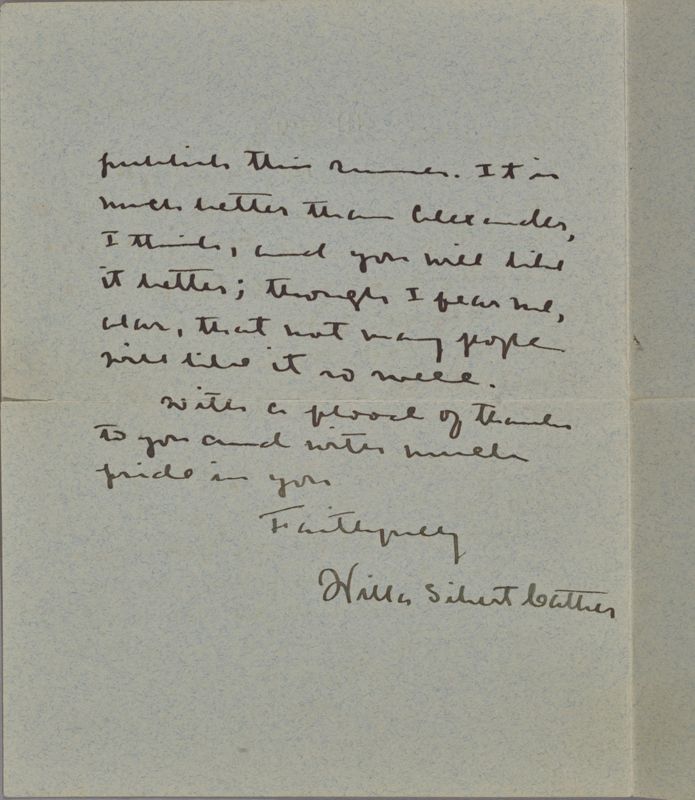 publish this summer. It is
much better than Alexander,
I think, and you will like
it better; though I fear me,
alas, that not many pople
will like it so well.
With a flood of thanks
to you and with much
pride in you
Faithfully
Willa Sibert Cather